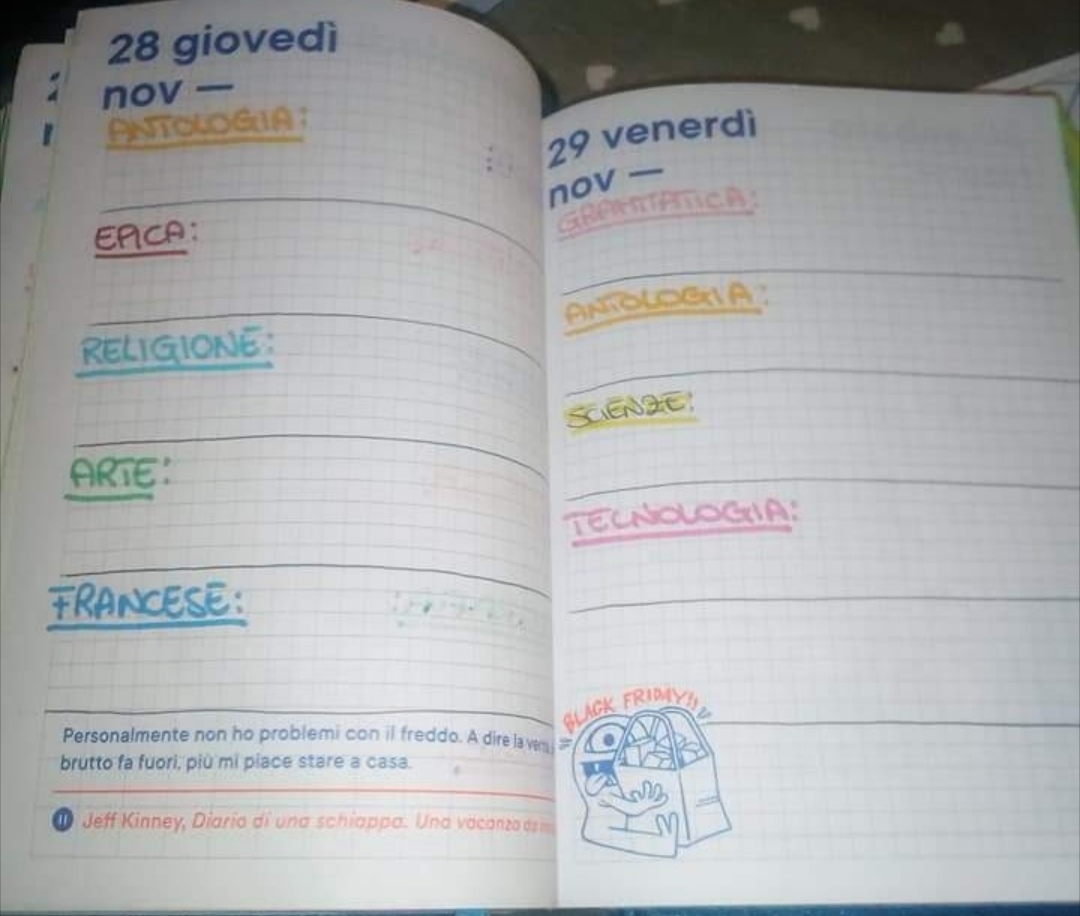 28 giovedì
nov —
ANTOLOGIA:
EPICA:
RELIGIONE:
ARTE:
FRANCESE:
Personalmente non ho problemi con il freddo. A dire la
brutto fa fuori, più mi piace stare a casa.
Jeff Kinney, Diario di una schiappa. Una vacanza da
29 venerdì
nov —
GRAMMATICA:
ANTOLOGIA:
SCIENZE:
TECNOLOGIA:
BLACK FRIDAY!!